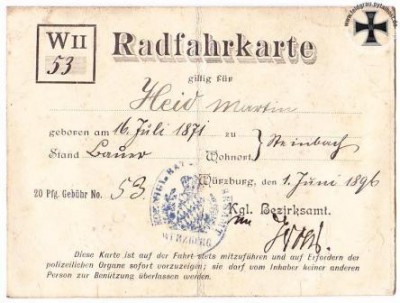 W II
53
Radfahrkarte
giltig für
Heid Martin
geboren am 16. Juli 1871 zu } Steinbach
Stand Bauer Wohnort
20 Pfg. Gebühr No. 53. Würzburg, den 1. Juni 1896
Kgl. Bezirksamt.
WÜRZBURG
Diese Karte ist auf der Fahrt stets mitzuführen und auf Erfordern der
polizeilichen Organe sofort vorzuzeigen; sie darf vom Inhaber keiner anderen
Person zur Benützung überlassen werden.